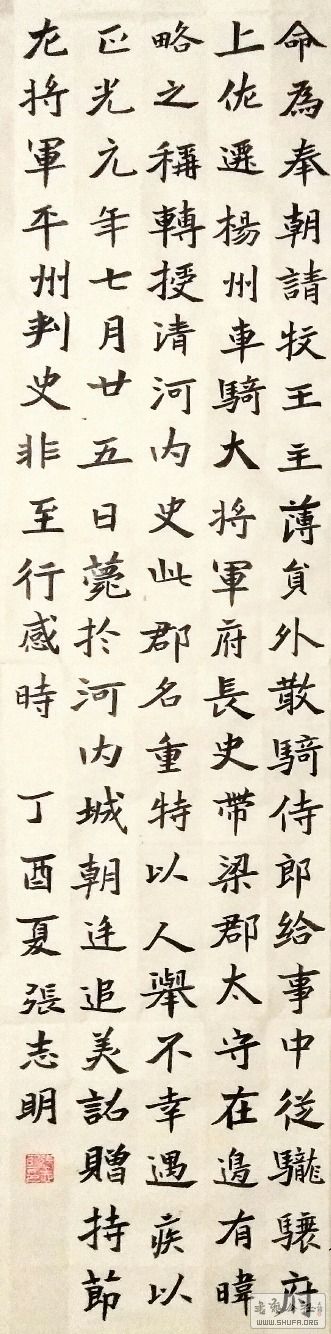 命為奉朝請牧王主薄貟外散騎侍郎給事中從䮾驤府
上佐遷楊州車騎大將軍府長史帶梁郡太守在邊有暐
略之稱轉授清河内史此郡名重特以人舉不幸遇疾以
正光元年七月廿五日薨於河内城朝廷追美詔贈持節
左將軍平州刺史非至行感時 丁酉夏張志明
WWW.SHUFA.ORG